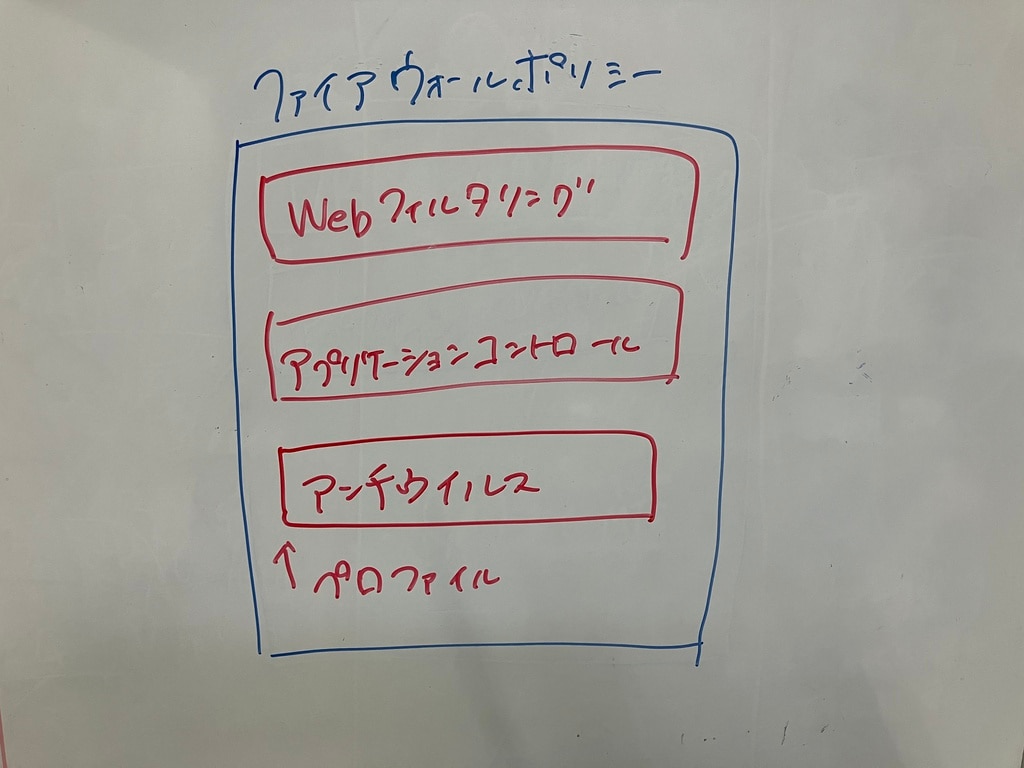 ファイアウォールポリシー
Webフィルタリング
アプリケーションコントロール
アンチウイルス
↑プロファイル